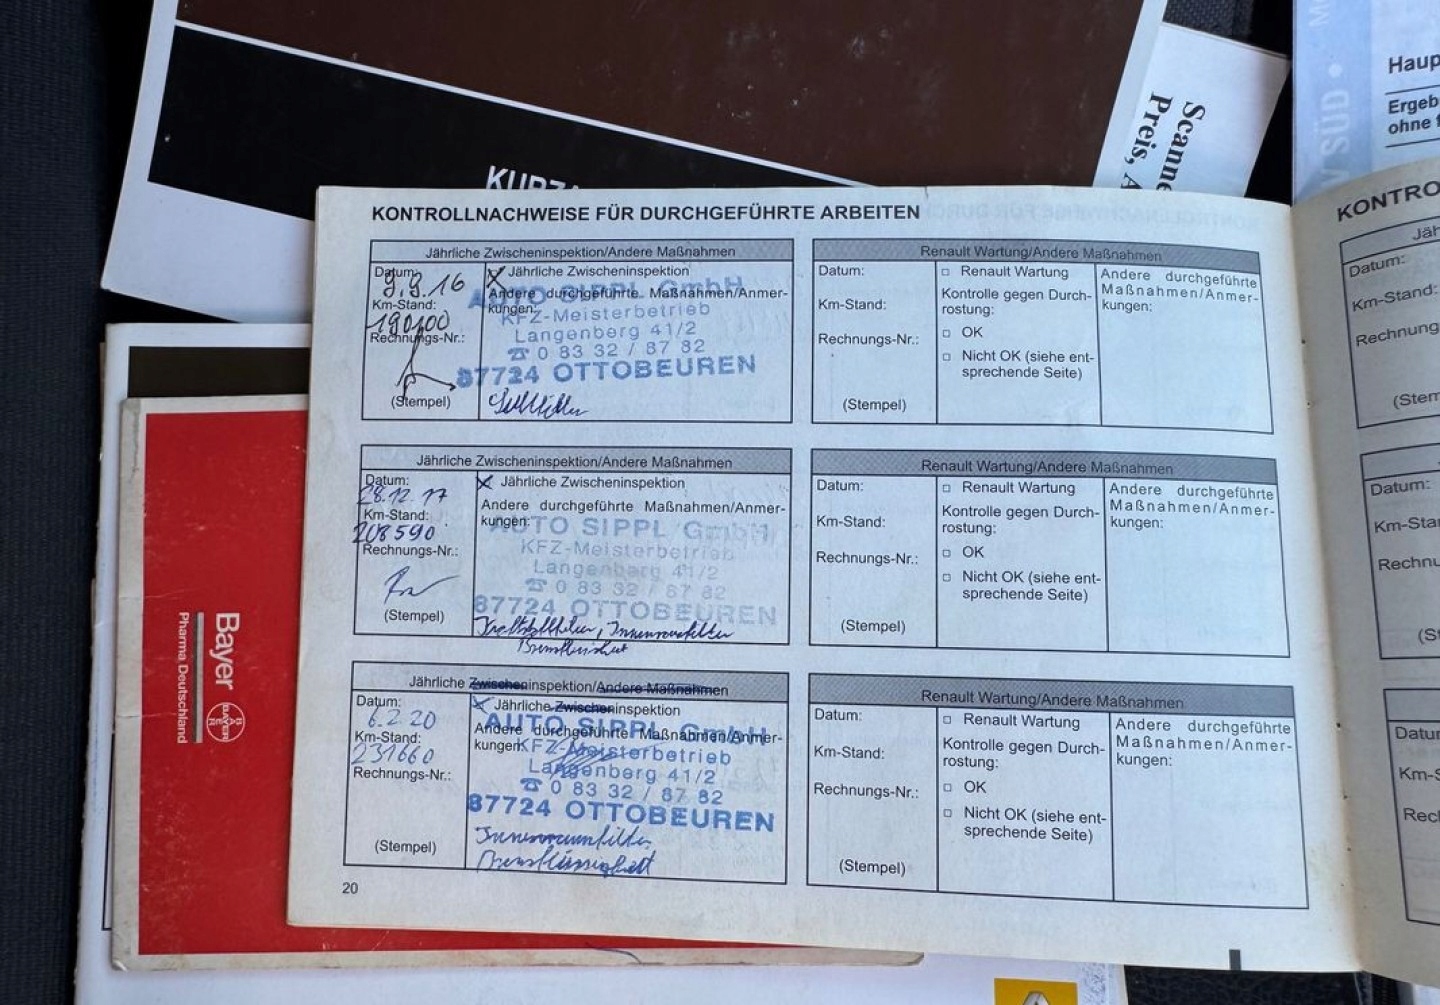 Haup
Ergeb
ohne f
SÜD
Scanne
Preis, A
KURZ
KONTROLLNACHWEISE FÜR DURCHGEFÜHRTE ARBEITEN
Jährliche Zwischeninspektion/Andere Maßnahmen
Datum:
9.9.16
Km-Stand:
190100
Rechnungs-Nr.:
(Stempel)
Jährliche Zwischeninspektion
Andere durchgeführte Maßnahmen/Anmer-
kungen:
AUTO SIPPL GmbH
KFZ-Meisterbetrieb
Langenberg 41/2
☎ 0 83 32 / 87 82
87724 OTTOBEUREN
Renault Wartung/Andere Maßnahmen
Datum:
Km-Stand:
Rechnungs-Nr.:
(Stempel)
Renault Wartung
Kontrolle gegen Durch-
rostung:
OK
Nicht OK (siehe ent-
sprechende Seite)
Andere durchgeführte
Maßnahmen/Anmer-
kungen:
Jährliche Zwischeninspektion/Andere Maßnahmen
Datum:
28.12.17
Km-Stand:
208590
Rechnungs-Nr.:
(Stempel)
Jährliche Zwischeninspektion
Andere durchgeführte Maßnahmen/Anmer-
kungen:
AUTO SIPPL GmbH
KFZ-Meisterbetrieb
Langenberg 41/2
☎ 0 83 32 / 87 82
87724 OTTOBEUREN
Kraftstofffilter, Innenraumfilter
Bremsflüssigkeit
Renault Wartung/Andere Maßnahmen
Datum:
Km-Stand:
Rechnungs-Nr.:
(Stempel)
Renault Wartung
Kontrolle gegen Durch-
rostung:
OK
Nicht OK (siehe ent-
sprechende Seite)
Andere durchgeführte
Maßnahmen/Anmer-
kungen:
Jährliche Zwischeninspektion/Andere Maßnahmen
Datum:
6.2.20
Km-Stand:
231660
Rechnungs-Nr.:
(Stempel)
Jährliche Zwischeninspektion
Andere durchgeführte Maßnahmen/Anmer-
kungen:
AUTO SIPPL GmbH
KFZ-Meisterbetrieb
Langenberg 41/2
☎ 0 83 32 / 87 82
87724 OTTOBEUREN
Innenraumfilter
Bremsflüssigkeit
Renault Wartung/Andere Maßnahmen
Datum:
Km-Stand:
Rechnungs-Nr.:
(Stempel)
Renault Wartung
Kontrolle gegen Durch-
rostung:
OK
Nicht OK (siehe ent-
sprechende Seite)
Andere durchgeführte
Maßnahmen/Anmer-
kungen:
20
KONTRO
Jäh
Datum:
Km-Stand:
Rechnung
(Stem
Datum:
Km-Sta
Rechnu
(St
Datur
Km-S
Recl
Bayer
Pharma Deutschland
BAYER